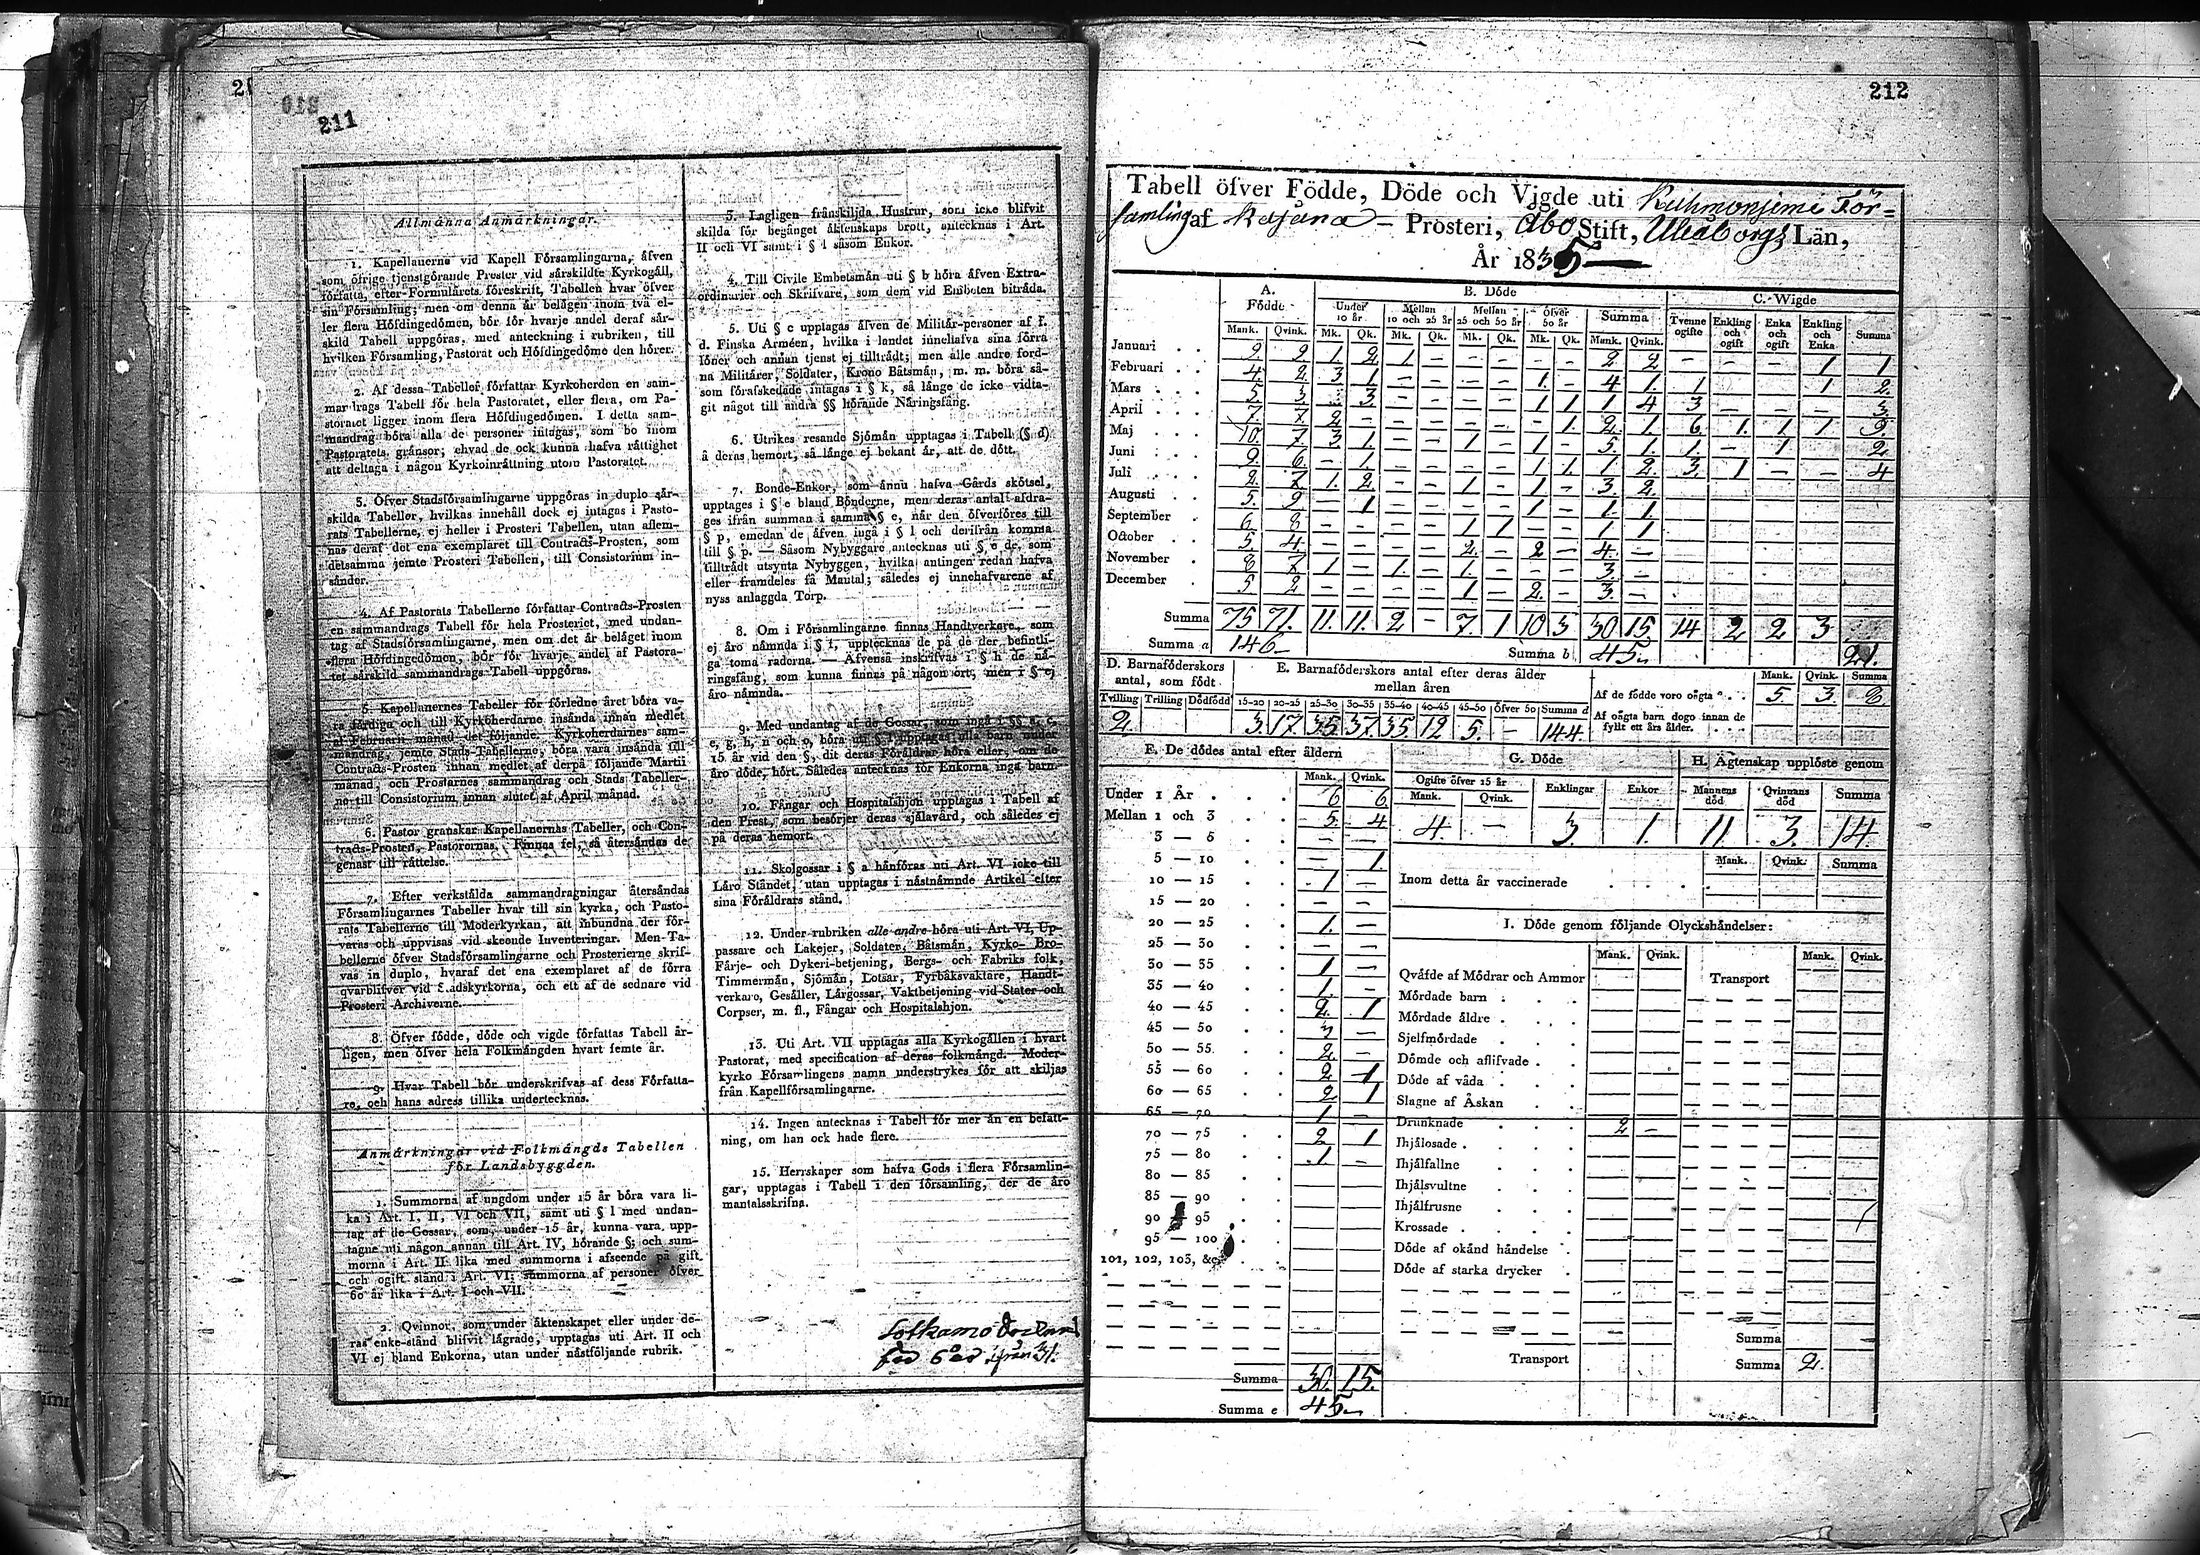 211
Allmänna Anmärkningar.
1. Kapellanerne vid Kapell Församlingarna, äfven
som öfrige tjenstgörande Prester vid särskildte Kyrkogäll,
författa, efter Formulärets föreskrift, Tabellen hvar öfver
sin Församling; men om denna är belägen inom två el-
ler flera Höfdingedömen, bör för hvarje andel deraf sär-
skild Tabell uppgöras, med anteckning i rubriken, till
hvilken Församling, Pastorat och Höfdingedöme den hörer.
2. Af dessa Tabeller författar Kyrkoherden en sam-
mandrags Tabell för hela Pastoratet, eller flera, om Pa-
storatet ligger inom flera Höfdingedömen. I detta sam-
mandrag böra alla de personer intagas, som bo inom
Pastoratets gränsor; ehvad de ock kunna hafva rättighet
att deltaga i någon Kyrkoinrättning utom Pastoratet.
3. Öfver Stadsförsamlingarne uppgöras in duplo sär-
skilda Tabeller, hvilkas innehåll dock ej intagas i Pasto-
rats Tabellerne, ej heller i Prosteri Tabellen, utan aflem-
nas deraf det ena exemplaret till Contracts-Prosten, som
detsamma jemte Prosteri Tabellen, till Consistorium in-
sänder.
4. Af Pastorats Tabellerne författar Contracts-Prosten
en sammandrags Tabell för hela Prosteriet, med undan-
tag af Stadsförsamlingarne, men om det är beläget inom
flera Höfdingedömen, bör för hvarje andel af Pastora-
tet särskild sammandrags Tabell uppgöras.
5. Kapellanernes Tabeller för förledne året böra va-
ra färdiga och till Kyrkoherdarne insända innan medlet
af Februarii månad det följande. Kyrkoherdarnes sam-
mandrag, jemte Stads-Tabellerne, böra vara insända till
Contracts-Prosten innan medlet af derpå följande Martii
månad, och Prostarnes sammandrag och Stads Tabeller-
ne till Consistorium innan slutet af April månad.
6. Pastor granskar Kapellanernas Tabeller, och Con-
tracts-Prosten, Pastorernas. Finnas fel, så återsändas de
genast till rättelse.
7. Efter verkställda sammandragningar återsändas
Församlingarnes Tabeller hvar till sin kyrka, och Pasto-
rats Tabellerne till Moderkyrkan, att inbundna der för-
varas och uppvisas vid skeende Inventeringar. Men Ta-
bellerne öfver Stadsförsamlingarne och Prosterierne skrif-
vas in duplo, hvaraf det ena exemplaret af de förra
qvarblifver vid Stadskyrkorna, och ett af de sednare vid
Prosteri Archiverne.
8. Öfver födde, döde och vigde författas Tabell år-
ligen, men öfver hela Folkmängden hvart femte år.
9. Hvar Tabell bör underskrifvas af dess Författa-
re, och hans adress tillika undertecknas.
Anmärkningar vid Folkmängds Tabellen
för Landsbyggden.
1. Summorna af ungdom under 15 år böra vara li-
ka i Art. I, II, VI och VII, samt uti § l med undan-
tag af de Gossar, som, under 15 år, kunna vara upp-
tagne uti någon annan till Art. IV, hörande §; och sum-
morna i Art. II lika med summorna i afseende på gift
och ogift stånd i Art. VI; summorna af personer öfver
60 år lika i Art. I och VII.
2. Qvinnor, som under äktenskapet eller under de-
ras enke-stånd blifvit lägrade, upptagas uti Art. II och
VI ej bland Enkorna, utan under nästföljande rubrik.
3. Lagligen frånskiljda Hustrur, som icke blifvit
skilda för begånget äktenskaps brott, antecknas i Art.
II och VI samt i § l såsom Enkor.
4. Till Civile Embetsmän uti § b höra äfven Extra-
ordinarier och Skrifvare, som dem vid Embeten biträda.
5. Uti § c upptagas äfven de Militär-personer af f.
d. Finska Arméen, hvilka i landet innehafva sina förra
löner och annan tjenst ej tillträdt; men alle andre ford-
na Militärer, Soldater, Krono Båtsmän, m. m. böra så-
som förafskedade intagas i § k, så länge de icke vidta-
git något till andra §§ hörande Näringsfång.
6. Utrikes resande Sjömän upptagas i Tabell (§ d)
å deras hemort, så länge ej bekant är, att de dött.
7. Bonde-Enkor, som ännu hafva Gårds skötsel,
upptages i § e bland Bönderne, men deras antal afdra-
ges ifrån summan i samma § e, när den öfverföres till
§ p, emedan de äfven ingå i § l och derifrån komma
till § p. — Såsom Nybyggare antecknas uti § e de, som
tillträdt utsynta Nybyggen, hvilka antingen redan hafva
eller framdeles få Mantal; således ej innehafvarene af
nyss anlaggda Torp.
8. Om i Församlingarne finnas Handtverkare, som
ej äro nämnda i § f, upptecknas de på de der befintli-
ga toma raderna. — Äfvensä inskrifvas i § h de nä-
ringsfång, som kunna finnas på någon ort, men i § ej
äro nämnda.
9. Med undantag af de Gossar, som ingå i §§ a, c,
e, g, h, n och o, böra uti § l upptagas alla barn under
15 år vid den §, dit deras Föräldrar höra eller, om de
äro döde, hört. Således antecknas för Enkorna inga barn.
10. Fångar och Hospitalshjon upptagas i Tabell af
den Prest, som besörjer deras själavård, och således ej
på deras hemort.
11. Skolgossar i § a hänföras uti Art. VI icke till
Läro Ståndet, utan upptagas i nästnämnde Artikel efter
sina Föräldrars stånd.
12. Under rubriken alle andre böra uti Art. VI, Up-
passare och Lakejer, Soldater, Båtsmän, Kyrko- Bro-
Färje- och Dykeri-betjening, Bergs- och Fabriks folk,
Timmermän, Sjömän, Lotsar, Fyrbåksvaktare, Handt-
verkare, Gesäller, Lärgossar, Vaktbetjening vid Stater och
Corpser, m. fl., Fångar och Hospitalshjon.
13. Uti Art. VII upptagas alla Kyrkogällen i hvart
Pastorat, med specification af deras folkmängd. Moder-
kyrko Församlingens namn understrykes för att skiljas
från Kapellförsamlingarne.
14. Ingen antecknas i Tabell för mer än en befatt-
ning, om han ock hade flere.
15. Herrskaper som hafva Gods i flera Församlin-
gar, upptagas i Tabell i den församling, der de äro
mantalsskrifna.
Sotkamo
212
Tabell öfver Födde, Döde och Vigde uti Kuhmoniemi För=
samling af Kajana – Prosteri, Åbo Stift, Uleåborgs Län,
År 1835 —
A. Födde B. Döde C. Wigde
Under 10 år Mellan 10 och 25 år Mellan 25 och 50 år öfver 50 år Summa Tvenne ogifte Enkling och ogift Enka och ogift Enkling och Enka Summa
Mank. Qvink. Mk. Qk. Mk. Qk. Mk. Qk. Mk. Qk. Mank. Qvink.
Januari 9. 2 1. 2. 1 – – – – – 2 2 – – – 1 1
Februari 4. 2. 3. 1 – – – – 1. – 4 1. 1 1 2.
Mars 5 3. – 3 – – – – 1 1 1 4 3 – – – 3.
April 7. 7 2. – – – – – – 1. 2. 1. 6. 1. 1 1 9.
Maj 10. 7. 3. 1. – – 1 – 1. – 5. 1. 1. – 1 2.
Juni 9. 6. – 1. – – – – 1 1. 1 2. 3. 1 – – 4
Juli 2. 7. 1. 2. – – 1 – 1 – 3. 2.
Augusti 5. 9. – 1 – – – – 1 – 1. 1.
September 6 8 – – – – 1 1 – – 1 1
October 5. 4. – – – – 2. – 2 – 4. –
November 8 7 1 – 1. – 1. – – – 3. –
December 5 2 – – – – 1 – 2. – 3. –
Summa 75 71. 11. 11. 2 – 7. 1 10 3 30 15. 14 2 2 3
Summa a 146 Summa b 45 21.
D. Barnaföderskors antal, som födt
Tvilling Trilling Dödfödd
2.
E. Barnaföderskors antal efter deras ålder mellan åren
15–20 20–25 25–30 30–35 35–40 40–45 45–50 öfver 50 Summa d
3. 17. 35 37. 35 12 5. – 144.
Mank. Qvink. Summa
Af de födde voro oägta 5. 3. 8
Af oägta barn dogo innan de
fyllt ett års ålder.
F. De dödes antal efter åldern
Mank. Qvink.
Under 1 År 6 6
Mellan 1 och 3 5. 4
3 — 5 – –
5 — 10 – 1.
10 — 15 1 –
15 — 20 – –
20 — 25 1. –
25 — 30 – –
30 — 35 1 –
35 — 40 1. –
40 — 45 2. 1
45 — 50 3 –
50 — 55 2. –
55 — 60 2 1
60 — 65 2 1
65 — 70 1 –
70 — 75 2 1
75 — 80 1 –
80 — 85
85 — 90
90 — 95
95 — 100
101, 102, 103, &c.
Summa 30. 15.
Summa e 45
G. Döde
Ogifte öfver 15 år Enklingar Enkor
Mank. Qvink.
4. – 3. 1.
H. Ägtenskap upplöste genom
Mannens död Qvinnans död Summa
11. 3. 14.
Mank. Qvink. Summa
Inom detta år vaccinerade
I. Döde genom följande Olyckshändelser:
Mank. Qvink. Mank. Qvink.
Qväfde af Mödrar och Ammor Transport
Mördade barn
Mördade äldre
Sjelfmördade
Dömde och aflifvade
Döde af våda
Slagne af Åskan
Drunknade 2 –
Ihjälosade
Ihjälfallne
Ihjälsvultne
Ihjälfrusne
Krossade
Döde af okänd händelse
Döde af starka drycker
Summa
Transport Summa 2.